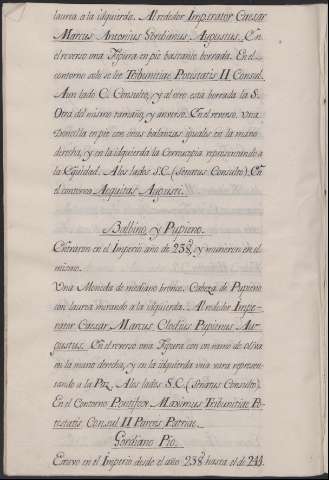 laurea a la izquierda. Al rededor Imperator Caesar
Marcus Antonius Gordianus Augustus. En
el reverso una Figura en pie bastante borrada. En el
contorno solo se lee Tribunitiae Potestatis II Consul.
A un lado C. Consulto, y al otro esta borrada la S.
Otra del mismo tamaño, y anverso. En el reverso, una
Doncella en pie con unas balanzas iguales en la mano
derecha, y en la izquierda la Cornucopia representando a
la Equidad. A los lados S.C. (Senatus Consulto). En
el contorno Aequitas Augusti.
Balbino, y Pupieno.
Entraron en el Imperio año de 238, y murieron en el
mismo.
Una Moneda de mediano bronce. Cabeza de Pupieno
con laurea mirando a la izquierda. Al rededor Impe-
rator Caesar Marcus Clodius Pupienus Au-
gustus. En el reverso una Figura con un ramo de oliva
en la mano derecha, y en la izquierda una vara represen-
tando a la Paz. A los lados S.C. (Senatus Consulto).
En el Contorno Pontifex Maximus Tribunitiae Po-
testatis Consul II Parens Patriae.
Gordiano Pio.
Estuvo en el Imperio desde el año 238 hasta el de 244.